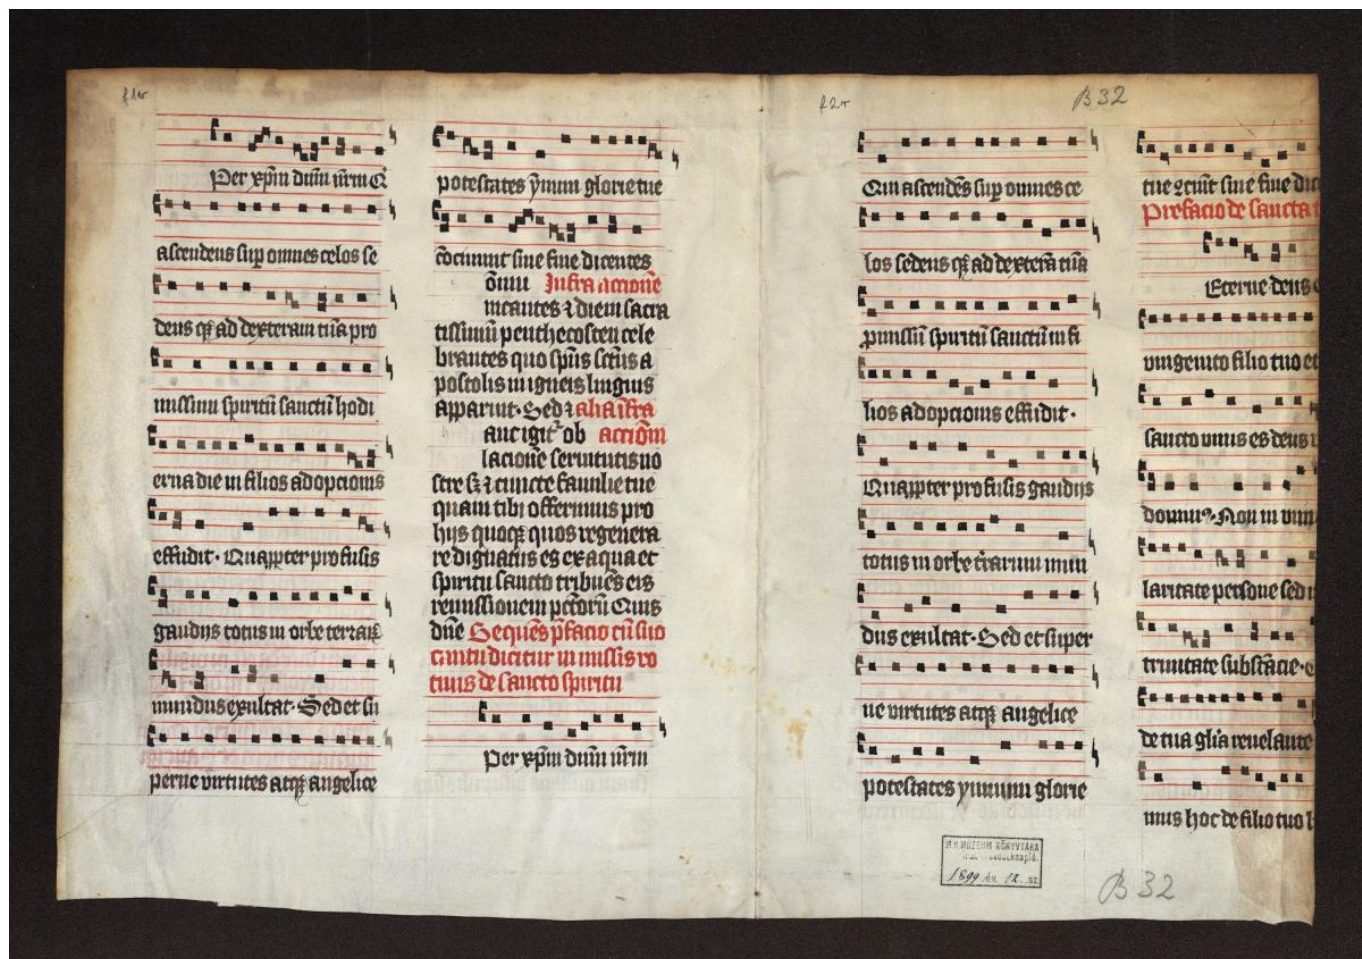 f1v
Per xp̄m dn̄m nr̄m Q
ascendens sup̱ omnes celos se
dens q̱ʒ ad dexteram tuā pro
missum spiritū sanctū hodi
erna die in filios adopcionis
effudit · Quap̱pter profusis
gaudijs totus in orbe terraꝝ
mundus exultat · Sed et su
perne virtutes atqʒ angelice
potestates ẏmnum glorie tue
cōcinunt sine fine dicentes
Infra actionē
nicantes ⁊ diem sacra
tissimū penthecosten cele
brantes quo spūs sctūs a
postolis in igneis linguis
apparuit · Sed ⁊ alia īfra
anc igit᷑ ob actiōm
lacionē seruitutis no
stre sʒ ⁊ cuncte familie tue
quam tibi offerimus pro
hijs quoqʒ quos regenera
re dignatus es ex aqua et
spiritu sancto tribuēs eis
remissionem pctōrū Quis
dūe Sequēs p̄facio cū suo
cantu dicitur in missis vo
tiuis de sancto spiritu
Per xp̄m dn̄m nr̄m
f2r
B 32
Qui ascendēs sup̱ omnes ce
los sedens q̱ʒ ad dexterā tuā
p̱missū spiritū sanctū in fi
lios adopcionis effudit ·
Quap̱pter profusis gaudijs
totus in orbe t̄rarum mun
dus exultat · Sed et super
ne virtutes atqʒ angelice
potestates ymnum glorie
tue ⁊cūt sine fine dic
Prefacio de sancta t
Eterne deus
vnigenito filio tuo et
sancto vnus es deus
domin᷒ · Non in vni
laritate persone sed
trinitate substācie ·
de tua glīa reuelante
mus hoc de filio tuo
M.N. MÚZEUM KÖNYVTÁRA
1899 év. 12. sz
B 32